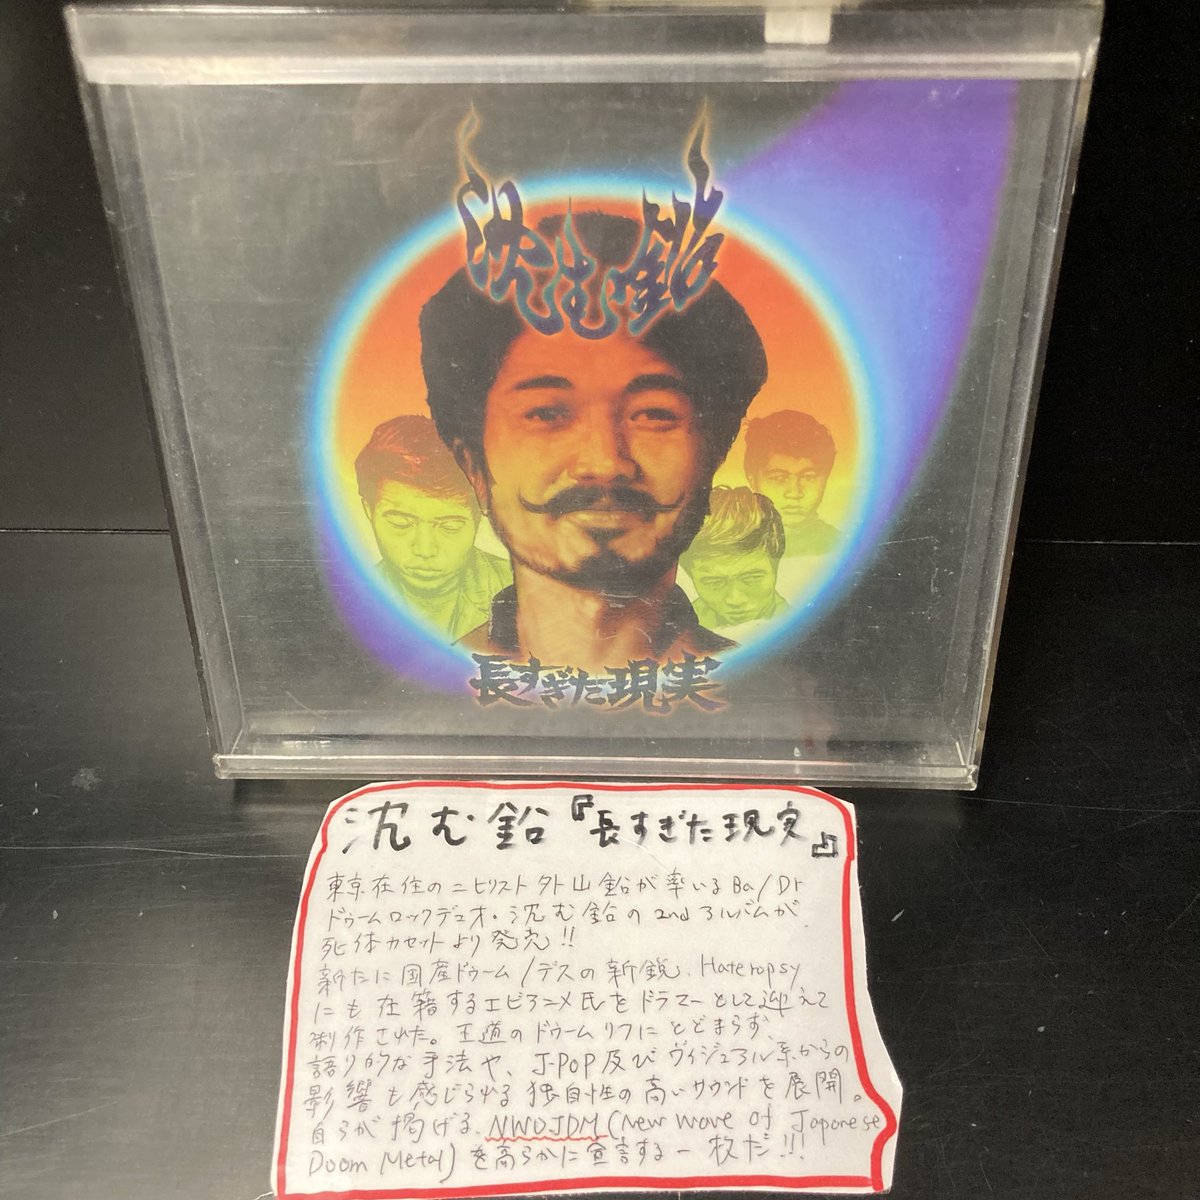 沈む鉛
長すぎた現実
沈む鉛『長すぎた現実』
東京在住のニヒリスト外山鉛が率いるBa/Dr
ドゥームロックデュオ・沈む鉛の2ndアルバムが、
死体カセットより発売!!
新たに国産ドゥーム/デスの新鋭、Hateropsy
にも在籍するエビアニメ氏をドラマーとして迎えて
制作された。王道のドゥームリフにとどまらず、
語り的な手法や、J-POP及びヴィジュアル系からの
影響も感じられる独自性の高いサウンドを展開。
自らが掲げる、NWOJDM(New wave of Japanese
Doom Metal)を高らかに宣言する一枚だ!!!